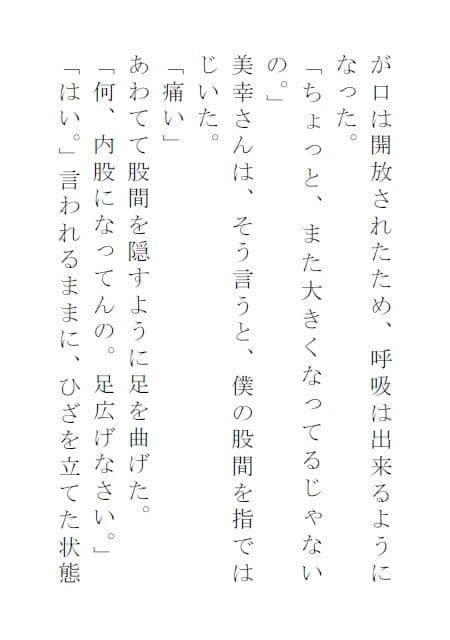 が口は開放されたため、呼吸は出来るように
なった。
「ちょっと、また大きくなってるじゃない
の。」
美幸さんは、そう言うと、僕の股間を指では
じいた。
「痛い」
あわてて股間を隠すように足を曲げた。
「何、内股になってんの。足広げなさい。」
「はい。」言われるままに、ひざを立てた状態